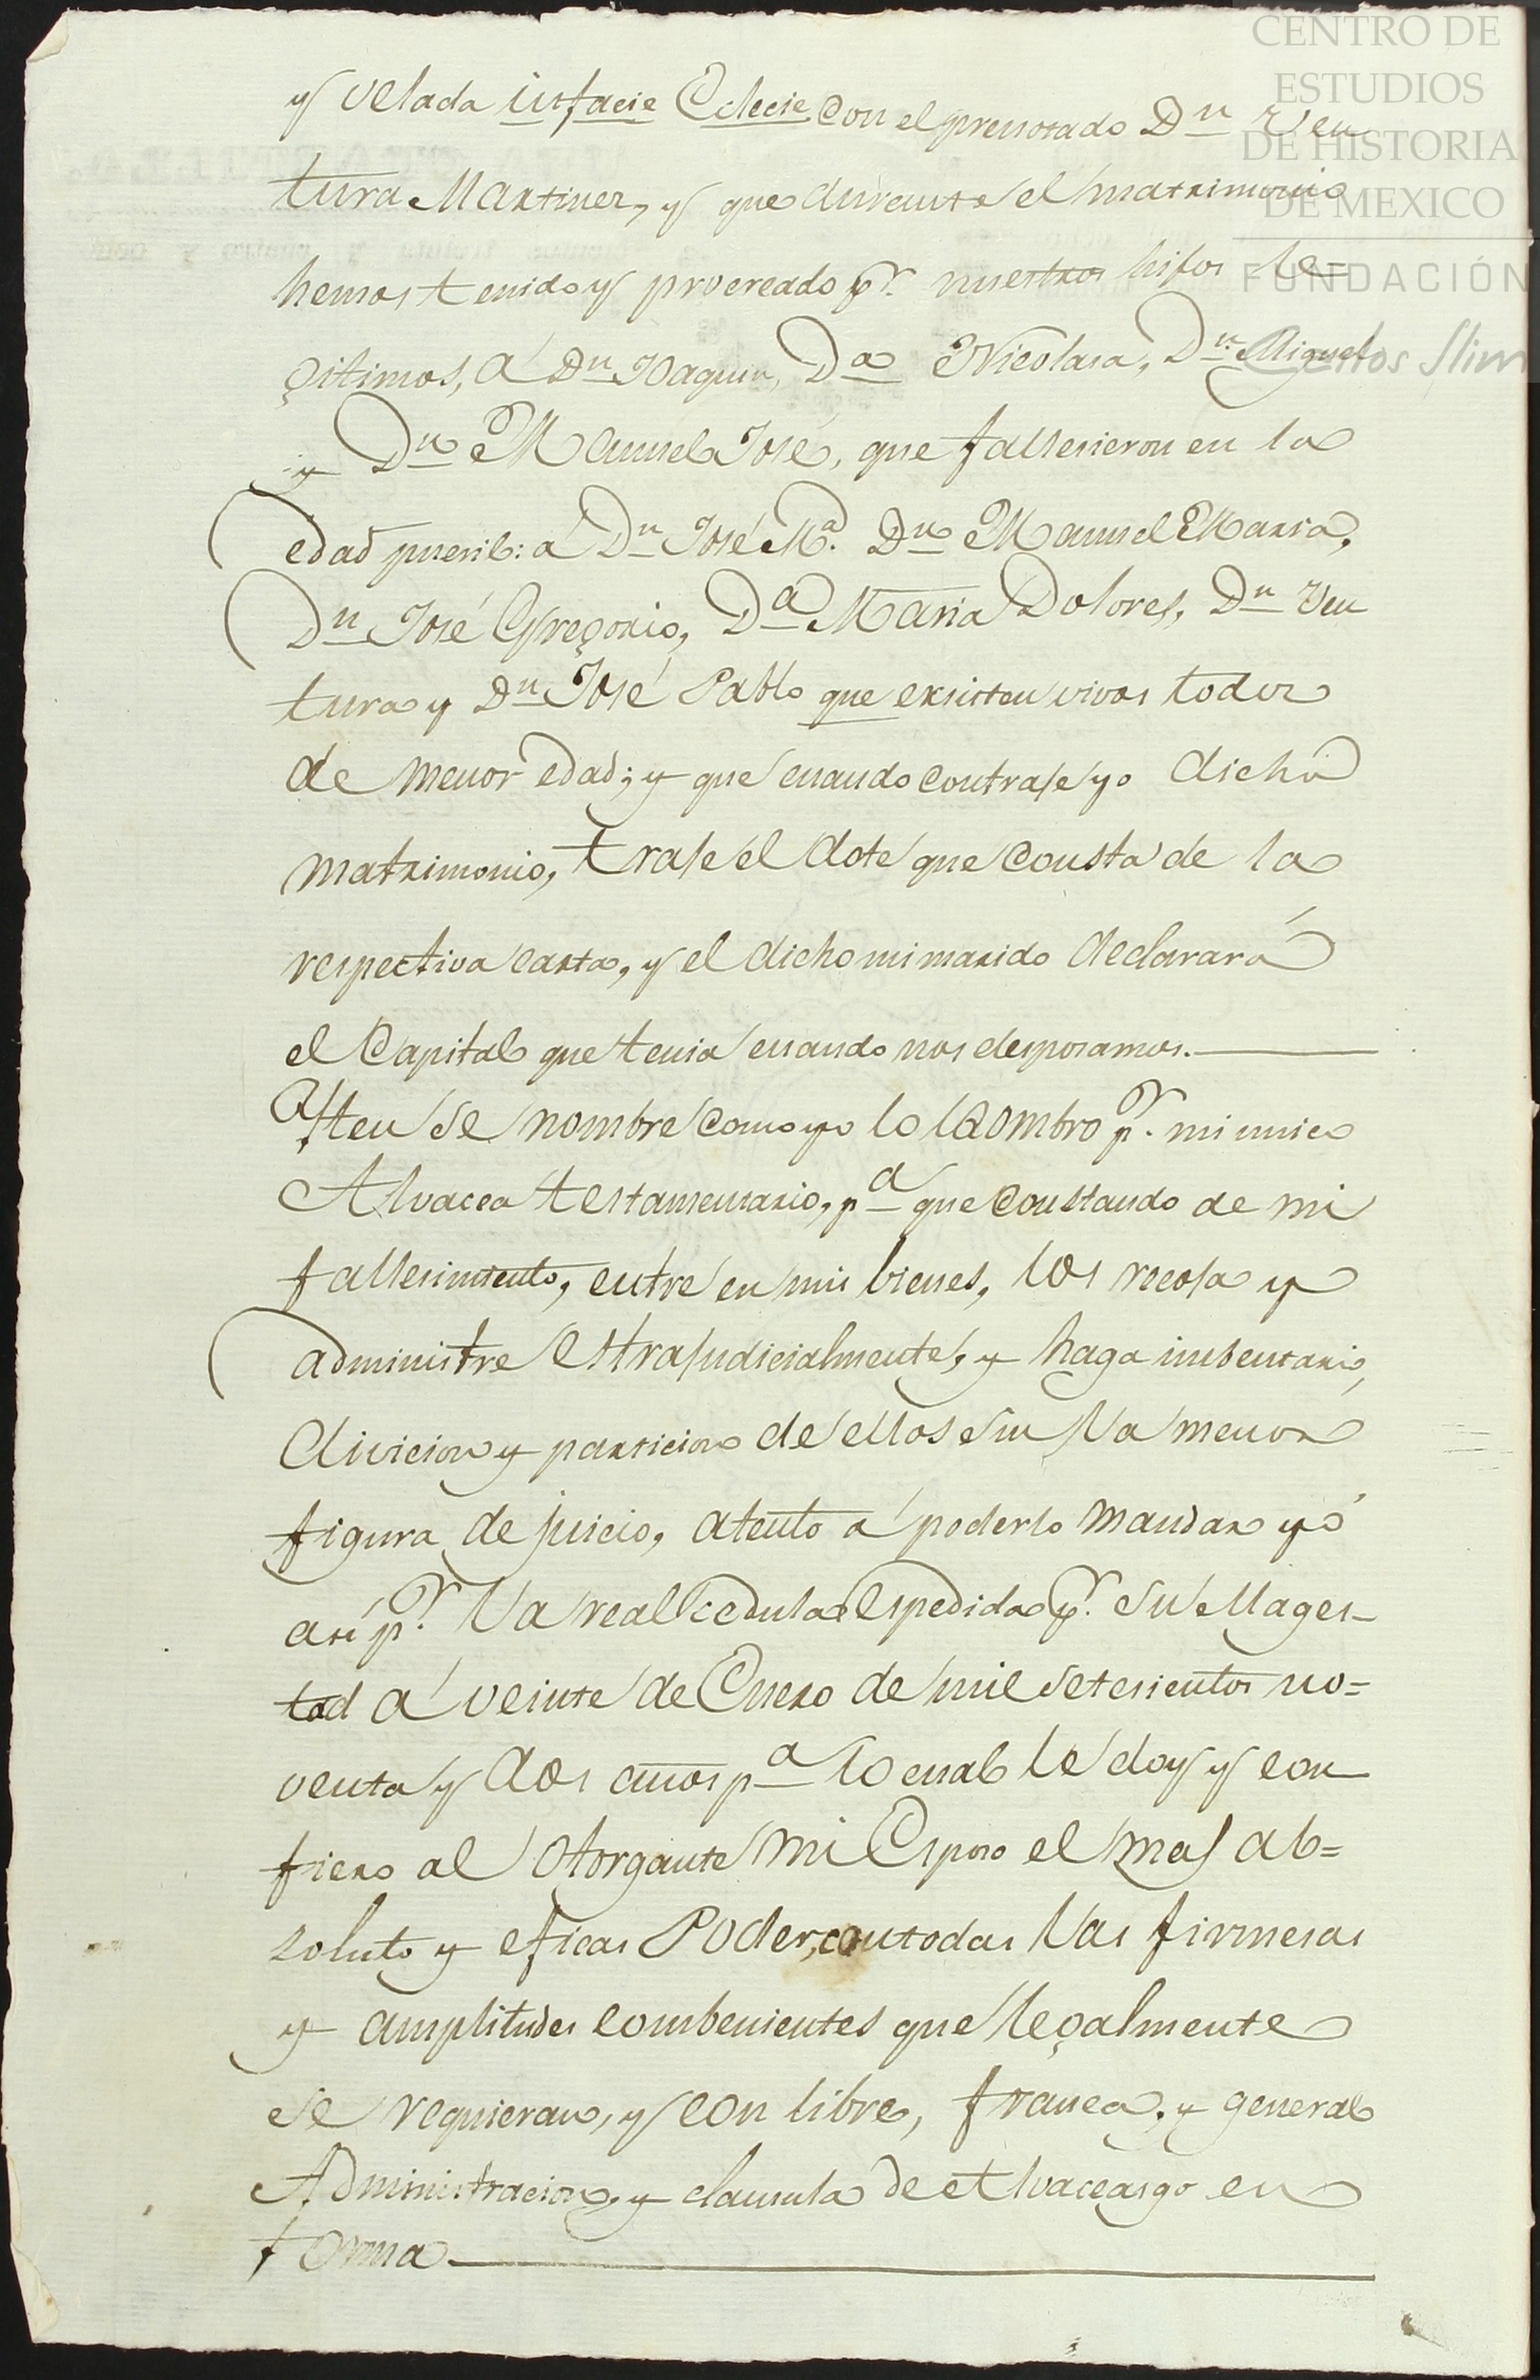 CENTRO DE
ESTUDIOS
DE HISTORIA
DE MEXICO
FUNDACIÓN
Carlos Slim
y velada infacie Eclecie, con el prenotado Dn Ven
tura Martinez, y que durante el matrimonio
hemos tenido y procreado pr. nuestros hijos le=
gitimos, á Dn Joaquin, Da Nicolasa, Dn Miguel
y Dn Manuel José, que fallesieron en la
edad pueril: á Dn José Ma. Dn Manuel Maria,
Dn José Gregorio, Da Maria Dolores, Dn Ven
tura y Dn José Pablo que exsisten vivos todos
de menor edad; y que cuando contraje yo dicho
matrimonio, traje el dote que consta de la
respectiva carta, y el dicho mi marido declarará
el Capital que tenia cuando nos desposamos.
Iten se nombre como yo lo nombro pr. mi unico
Alvacea testamentario, pa que constando de mi
fallesimiento, entre en mis bienes, los recoja y
administre estrajudicialmente, y haga imbentario,
divicion y particion de ellos sin la menor
figura de juicio, atento á poderlo mandar yó
asi pr. la real cedula espedida pr. su Mages-
tad á veinte de Enero de mil setesientos no=
venta y dos años pa lo cual le doy y con
fiero al otorgante mi Esposo el mas ab=
soluto y eficas Poder, con todas las firmesas
y amplitudes combenientes que legalmente
se requieran, y con libre, franca, y general
Administracion, y clausula de Alvaceasgo en
forma